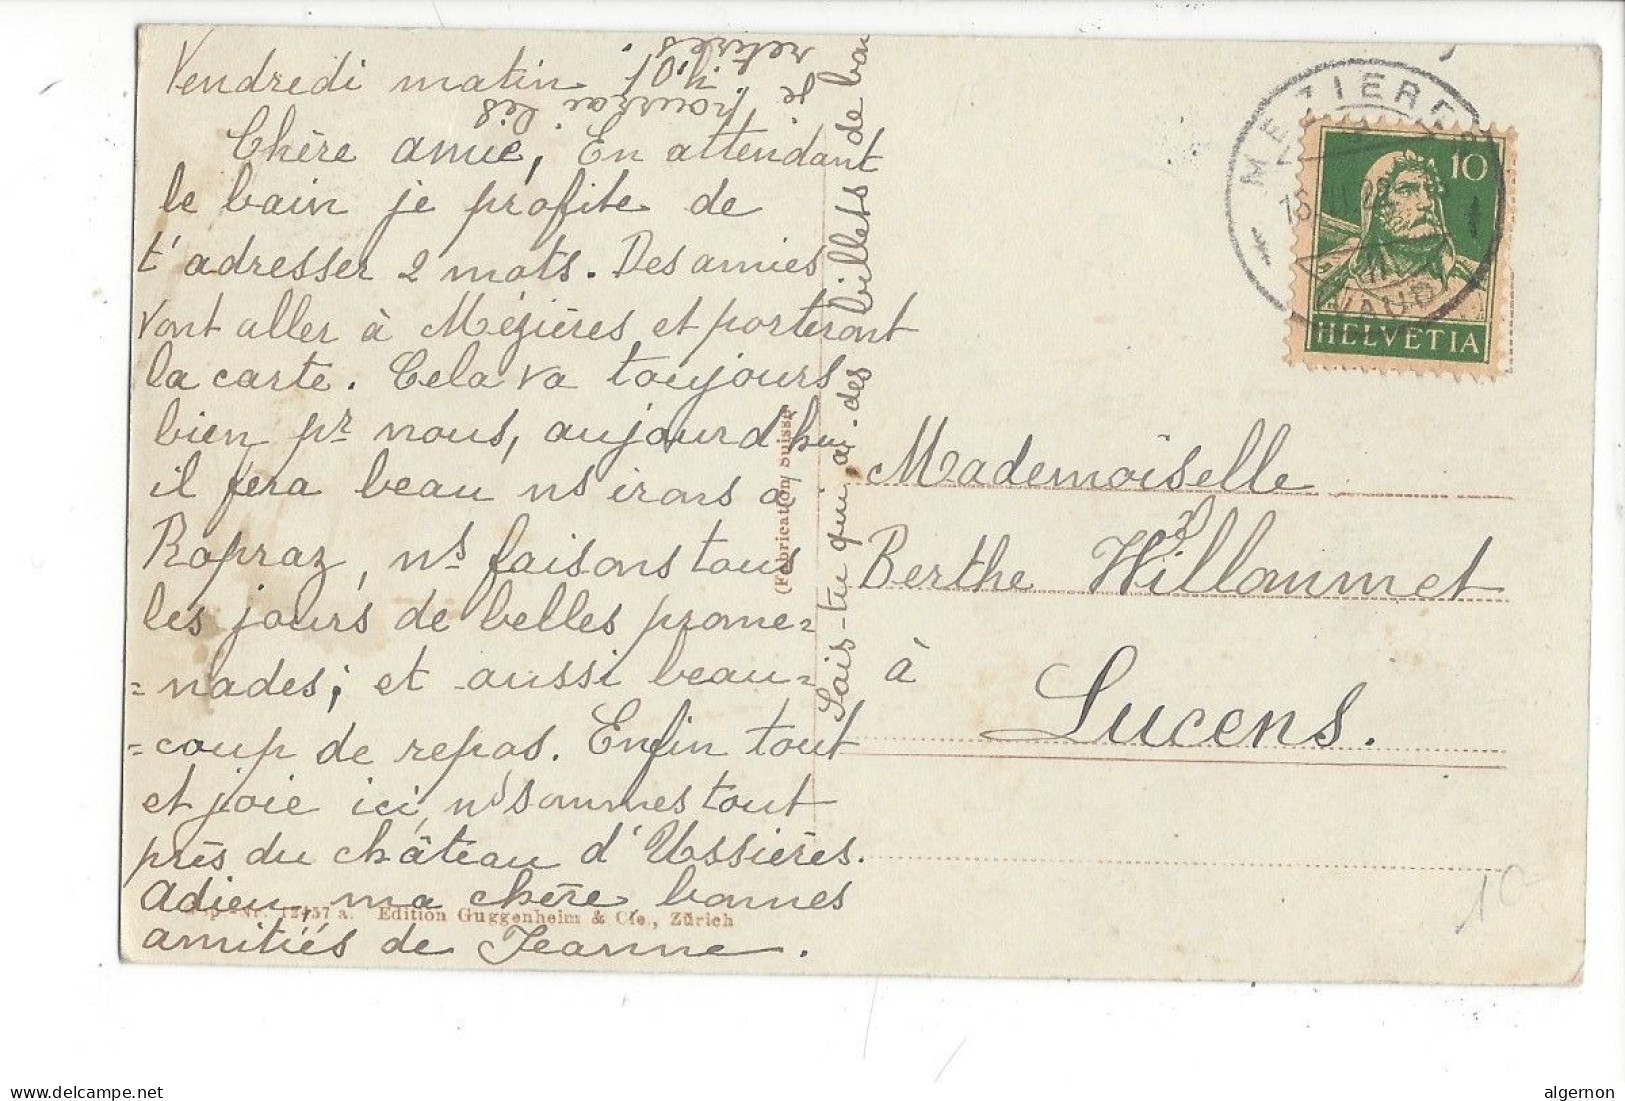 Vendredi matin 10h.
Chère amie, En attendant
le bain je profite de
t'adresser 2 mots. Des amies
vont aller à Mézières et porteront
la carte. Cela va toujours
bien pr nous, aujourd'hui
il fera beau ns irons a
Ropraz, ns faisons tous
les jours de belles prome=
=nades; et aussi beau=
=coup de repos. Enfin tout
et joie ici, ns sommes tout
près du château d'Ussières.
Adieu, ma chère, bonnes
amitiés de Jeanne.
Sais-tu qui a des billets de
je pourrai les
retirer.
(Fabrication Suisse)
Edition Guggenheim & Cie., Zürich
MEZIERES
VAUD
10
HELVETIA
Mademoiselle
Berthe Willommet
à
Lucens.
10-
algernon